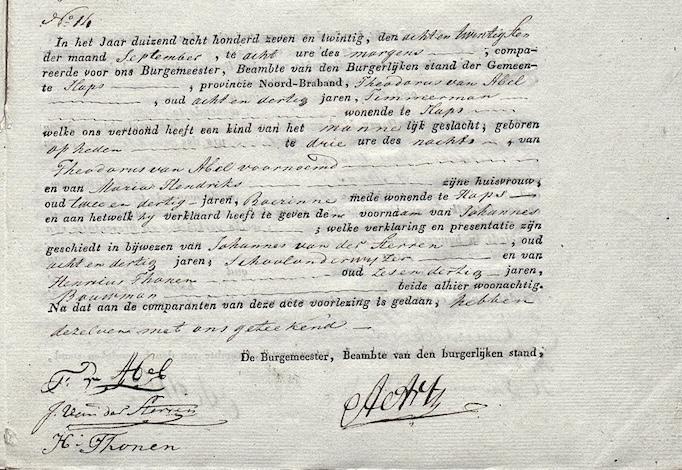 No 16
In het Jaar duizend acht honderd zeven en twintig, den acht en twintigsten
der maand September, te acht ure des morgens, compa-
reerde voor ons Burgemeester, Beambte van den Burgerlijken stand der Gemeen-
te Haps, provincie Noord-Braband, Theodorus van Abel
, oud acht en dertig jaren, Timmerman
wonende te Haps
welke ons vertoond heeft een kind van het mannelijk geslacht; geboren
op heden te drie ure des nachts, van
Theodorus van Abel voornoemd
en van Maria Hendriks zijne huisvrouw,
oud twee en dertig jaren, Boerinne mede wonende te Haps
en aan hetwelk hij verklaard heeft te geven den voornaam van Johannes
; welke verklaring en presentatie zijn
geschiedt in bijwezen van Johannes van der Sterren, oud
acht en dertig jaren; Schoolonderwyzer en van
Henricus Thonen oud zes en dertig jaren,
Bouwman beide alhier woonachtig.
Na dat aan de comparanten van deze acte voorlezing is gedaan; hebben
dezelven met ons geteekend
De Burgemeester, Beambte van den burgerlijken stand,
T. v Abel
J. van der Sterren
H. Thonen